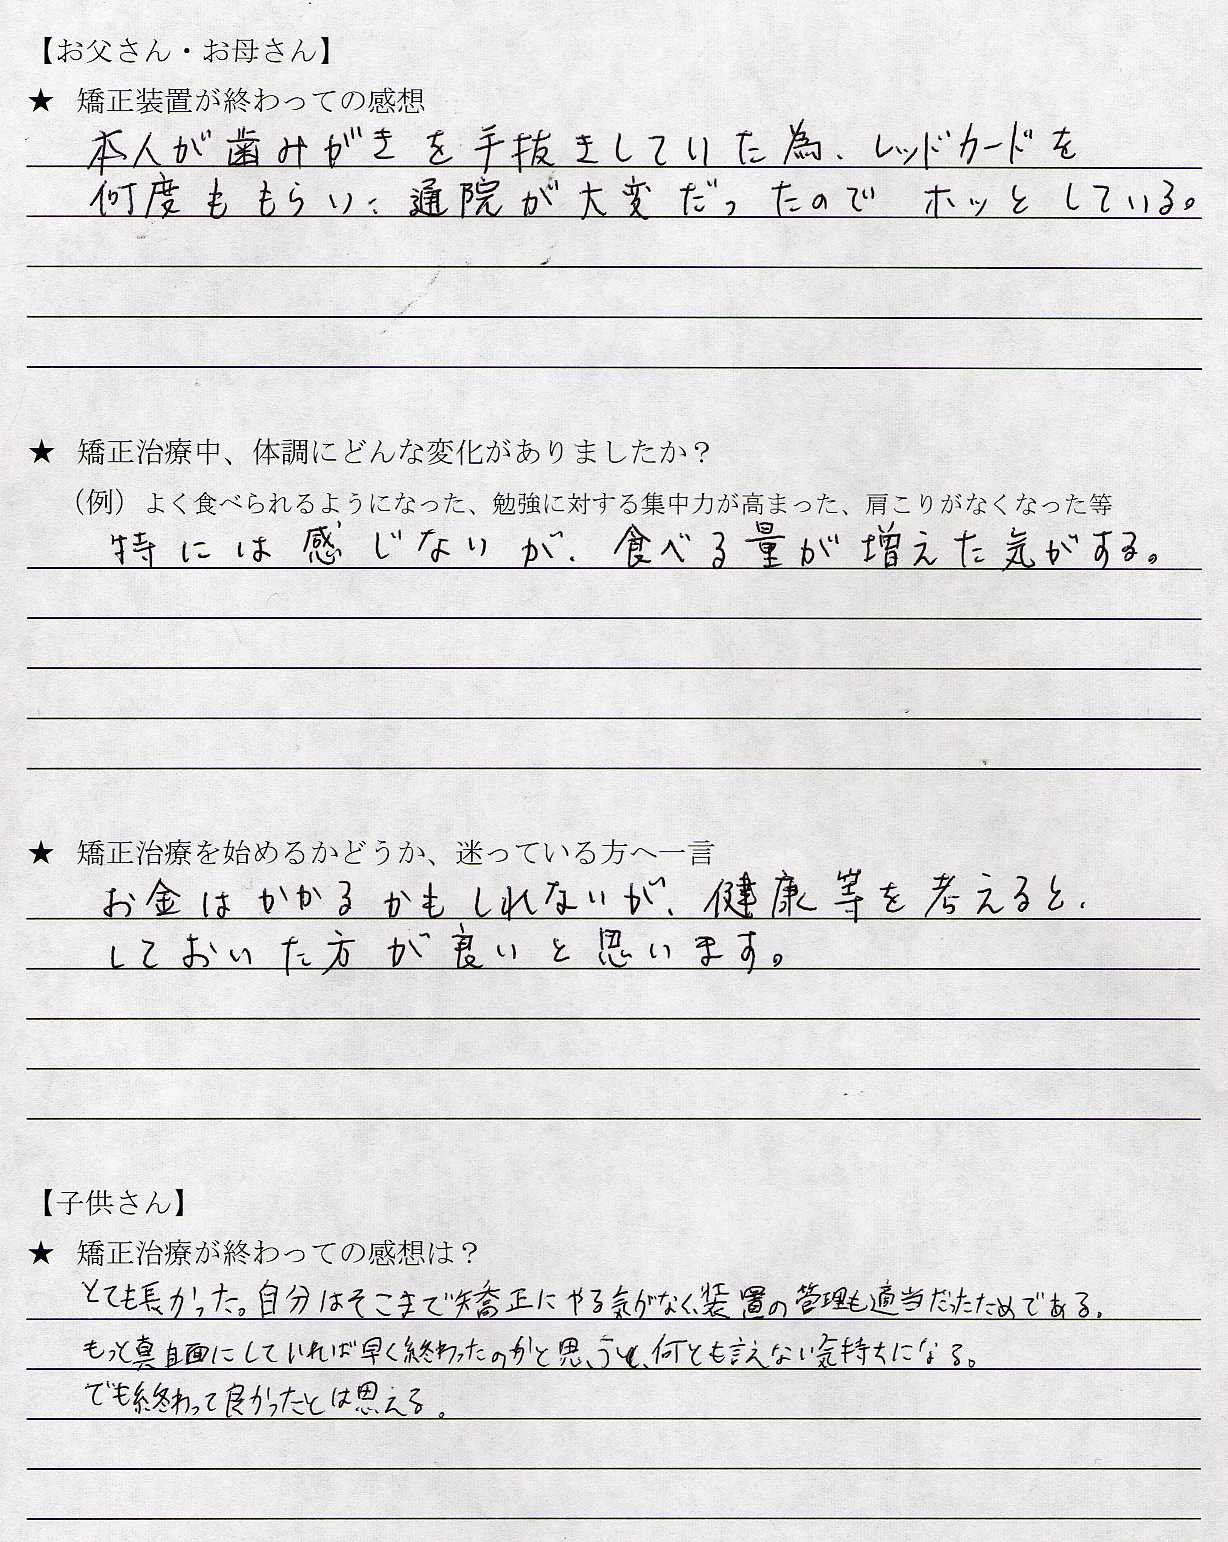 【お父さん・お母さん】
★ 矯正装置が終わっての感想
本人が歯みがきを手抜きしていた為、レッドカードを
何度ももらい、通院が大変だったのでホッとしている。
★ 矯正治療中、体調にどんな変化がありましたか？
（例）よく食べられるようになった、勉強に対する集中力が高まった、肩こりがなくなった等
特には感じないが、食べる量が増えた気がする。
★ 矯正治療を始めるかどうか、迷っている方へ一言
お金はかかるかもしれないが、健康等を考えると、
しておいた方が良いと思います。
【子供さん】
★ 矯正治療が終わっての感想は？
とても長かった。自分はそこまで矯正にやる気がなく、装置の管理も適当だったためである。
もっと真面目にしていれば早く終わったのかと思うと、何とも言えない気持ちになる。
でも終わって良かったとは思える。